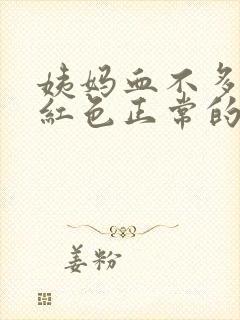 姨妈血不多
红色正常的
姜粉